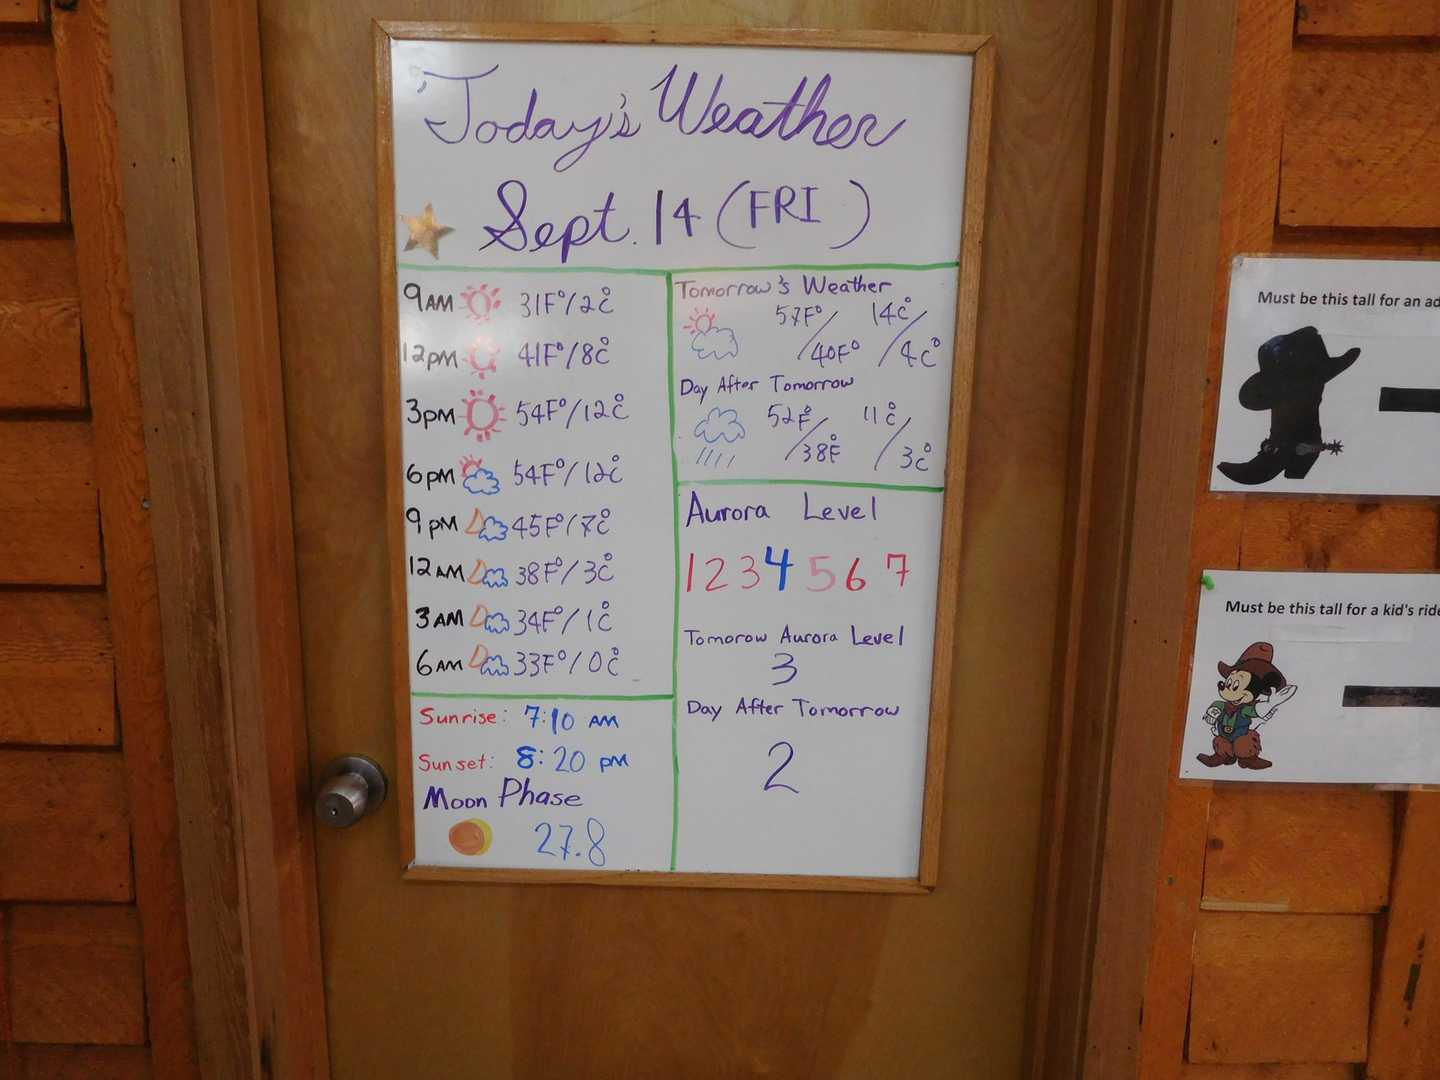 Today's Weather
Sept. 14 (FRI)
9AM 31F°/2C°
12pm 41F°/8C°
3pm 54F°/12C°
6pm 54F°/12C°
9pm 45F°/7C°
12AM 38F°/3C°
3AM 34F°/1C°
6AM 33F°/0C°
Sunrise: 7:10 AM
Sunset: 8:20 pm
Moon Phase
27.8
Tomorrow's Weather
57F°/40F° 14C°/4C°
Day After Tomorrow
52F°/38F° 11C°/3C°
Aurora Level
1 2 3 4 5 6 7
Tomorow Aurora Level
3
Day After Tomorrow
2
Must be this tall for an ad
Must be this tall for a kid's ride